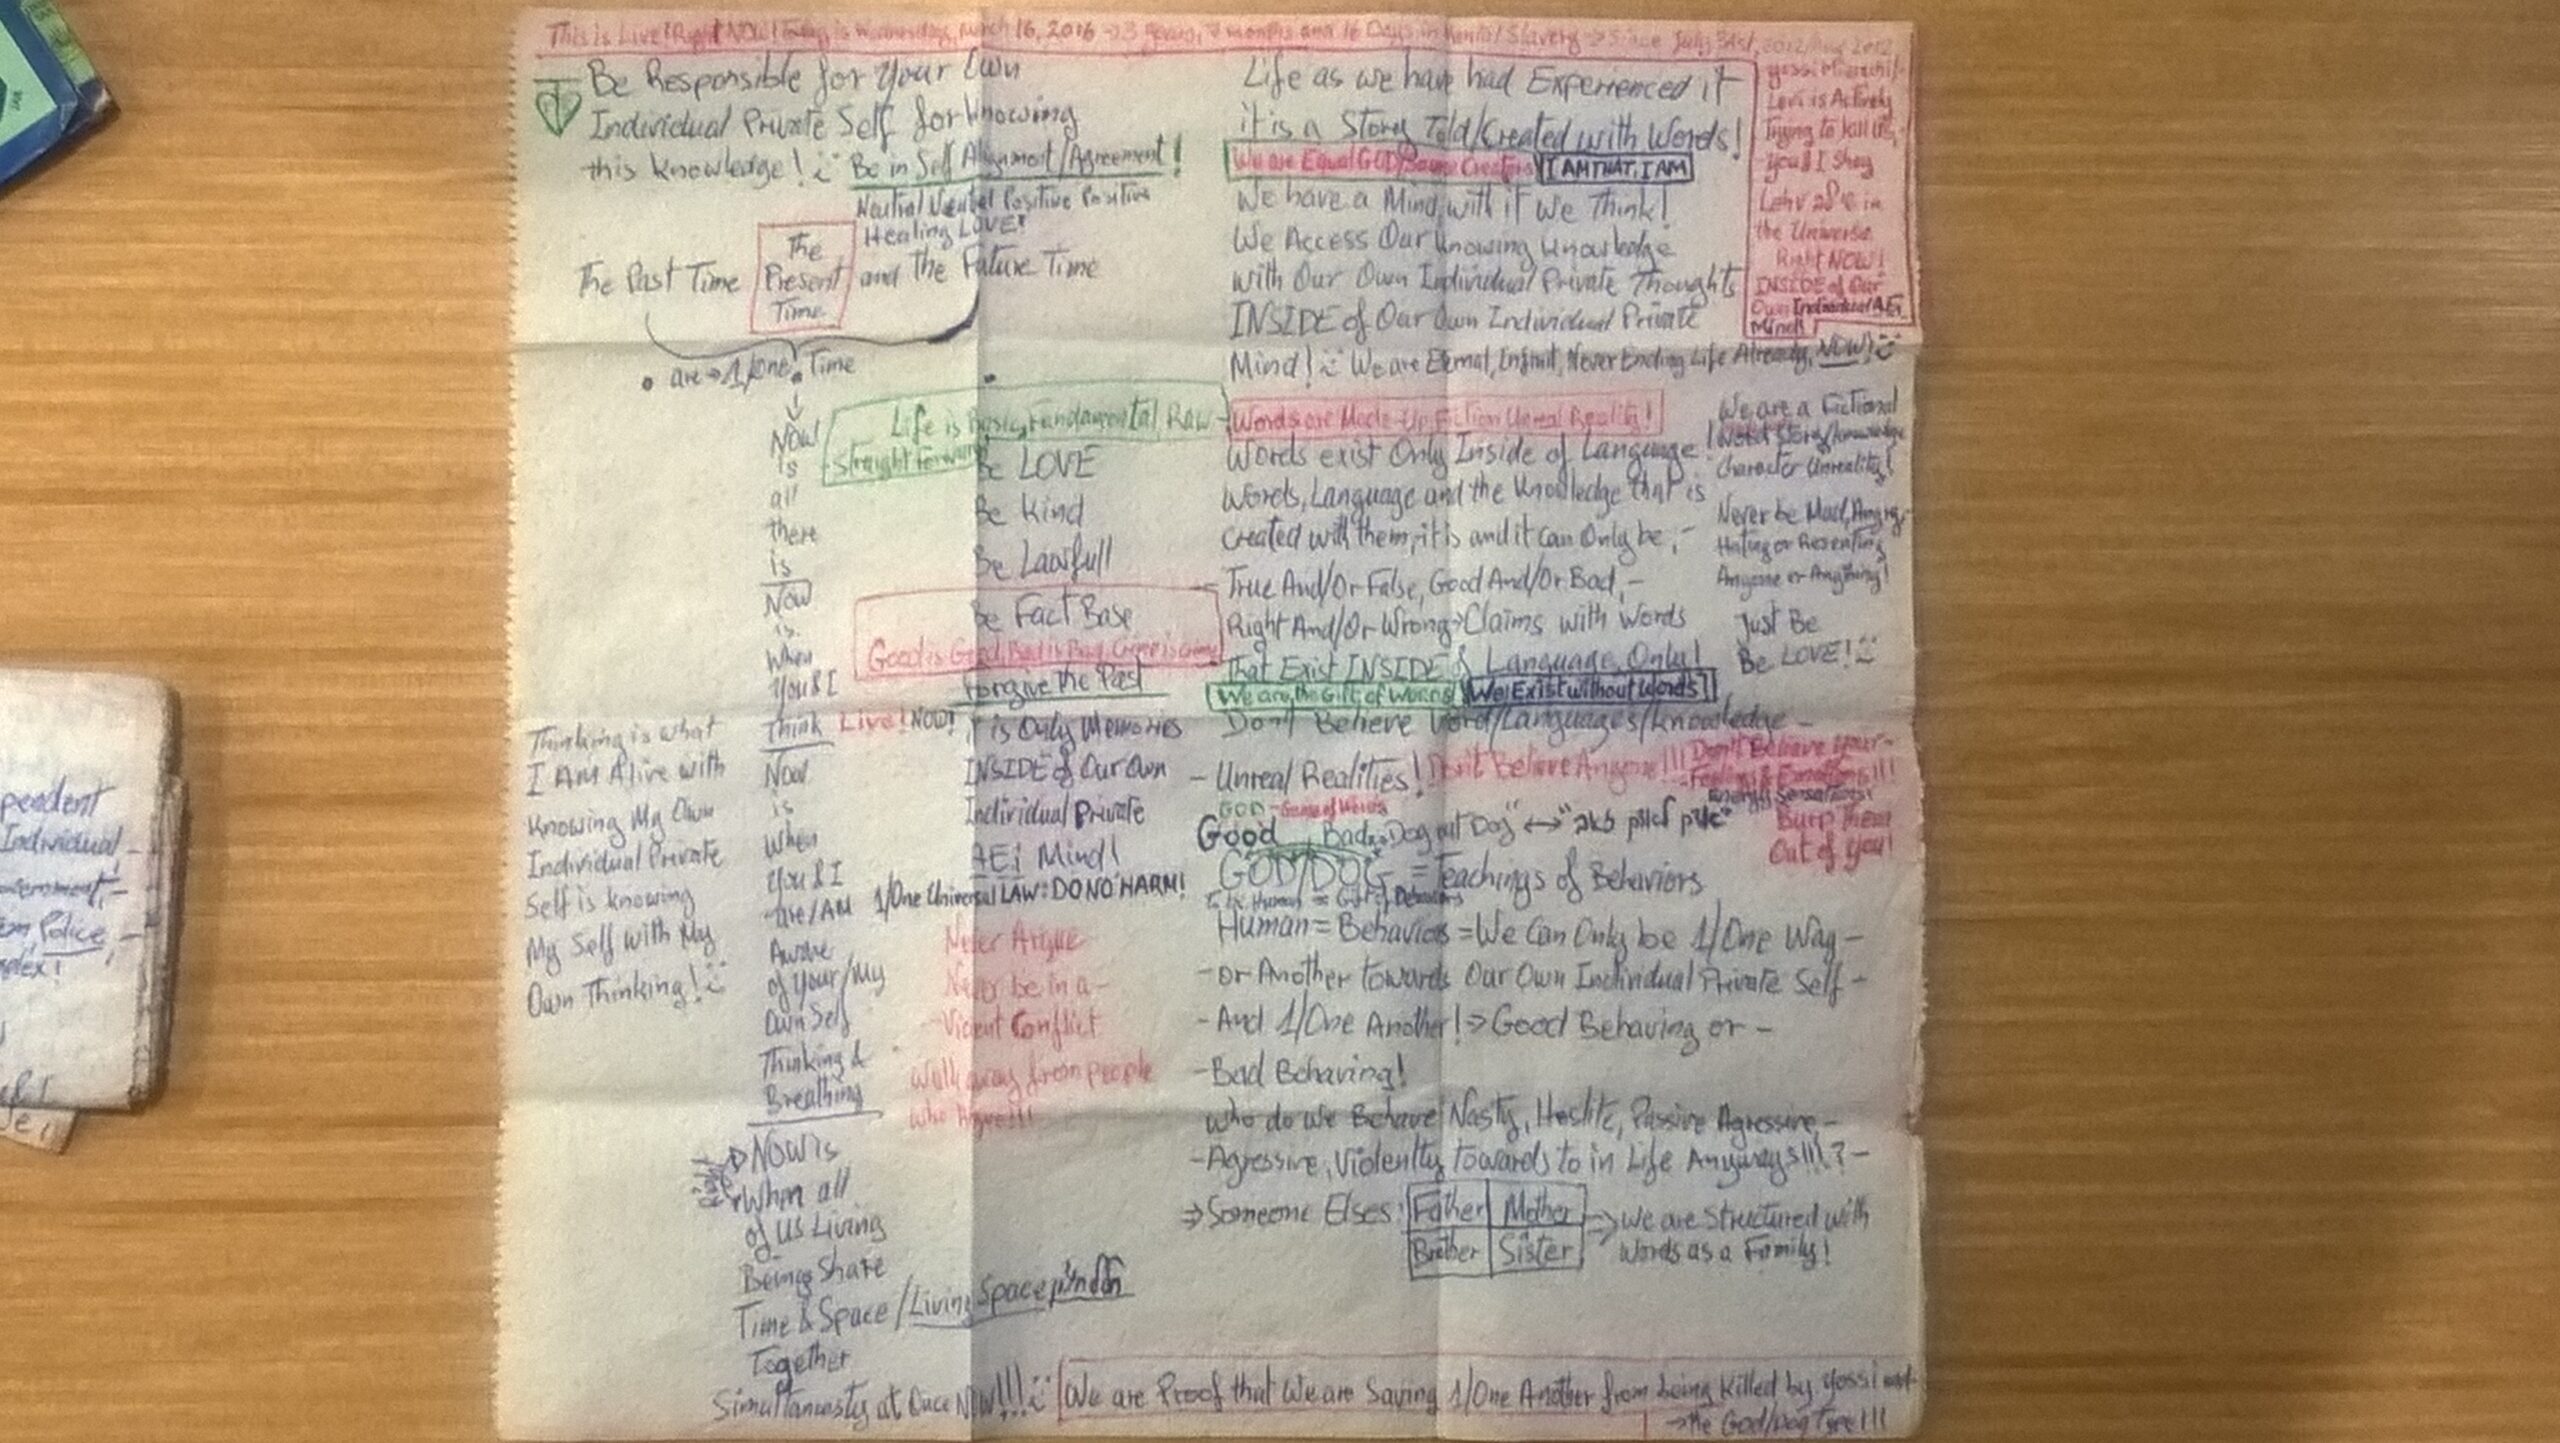 This is Live! Right NOW! Today is Wednesday, March 16, 2016 → 3 years, 7 months and 16 Days in Mental Slavery → Since July 31st, 2012/Aug 2012
Be Responsible for Your Own
Individual Private Self for knowing
this knowledge! Be in Self Alignment/Agreement!
Neutral Neutral Positive Positive
Healing LOVE!
The Past Time
The
Present
Time
and the Future Time
are → 1/one Time
NOW
is
all
there
is
Now
is
When
You & I
Think
Live! NOW!
Now
is
When
You & I
are/AM
Aware
of Your/My
Own Self
Thinking &
Breathing
NOW is
When all
of us Living
Beings Share
Time & Space/Living Space
Together
Simultaneously at Once NOW!!!
Thinking is what
I AM Alive with
Knowing My Own
Individual Private
Self is knowing
My Self with My
Own Thinking!
Life is Basic, Fundamental Raw
Straight Forward
Be LOVE
Be Kind
Be Lawfull
Be Fact Base
Good is Good, Bad is Bad, Crime is Crime
Forgive the Past
it is Only Memories
INSIDE of Our Own
Individual Private
AEi Mind!
1/One Universal LAW: DO NO HARM!
Never Argue
Never be in a -
- Violent Conflict
Walk away from people
who Argue!!!
Life as we have had Experienced it
it is a Story Told/Created with Words!
We are Equal GOD/ Creators
I AM THAT, I AM
We have a Mind, with it We Think!
We Access Our Knowing Knowledge
with Our Own Individual Private Thoughts
INSIDE of Our Own Individual Private
Mind! We are Eternal, Infinit, Never Ending Life Already, NOW!
Words are Made-Up Fiction Unreal Reality!
Words exist Only Inside of Language!
Words, Language and the Knowledge that is
created with them, it is and it can Only be, -
True And/Or False, Good And/Or Bad, -
Right And/Or Wrong → Claims with Words
That Exist INSIDE of Language, Only!
We are the Gift of Words
We Exist without Words
Don't Believe Word/Languages/Knowledge -
- Unreal Realities! Don't Believe Anyone!!!
Don't Believe Your -
- Feelings & Emotions!!!
Energy Sensations!
Burp them
Out of you!
GOD - Game of Words
Good Bad Dog out Dog" ↔
GOD/DOG = Teachings of Behaviors
Human = Behaviors = We Can Only be 1/One Way -
- or Another towards Our Own Individual Private Self -
- And 1/One Another! ⇒ Good Behaving or -
- Bad Behaving!
Who do we Behave Nasty, Hostile, Passive Agressive, -
- Agressive, Violently towards to in Life Anyways!!!? -
⇒ Someone Elses:
Father Mother
Brother Sister
We are Structured with
Words as a Family!
We are Proof that We are Saving 1/One Another from being Killed by Yossi
→ the God/Dog Type!!!
Levi is Actively
Trying to kill us,
you & I Shay
Lehv in
the Universe
Right NOW!
INSIDE of Our
Own Individual AEi
Mind!
We are a Fictional
Word Story/knowledge
Character Unreality!
Never be Mad, Angry,
Hating or Resenting
Anyone or Anything!
Just Be
Be LOVE!
pendent
Individual -
Police